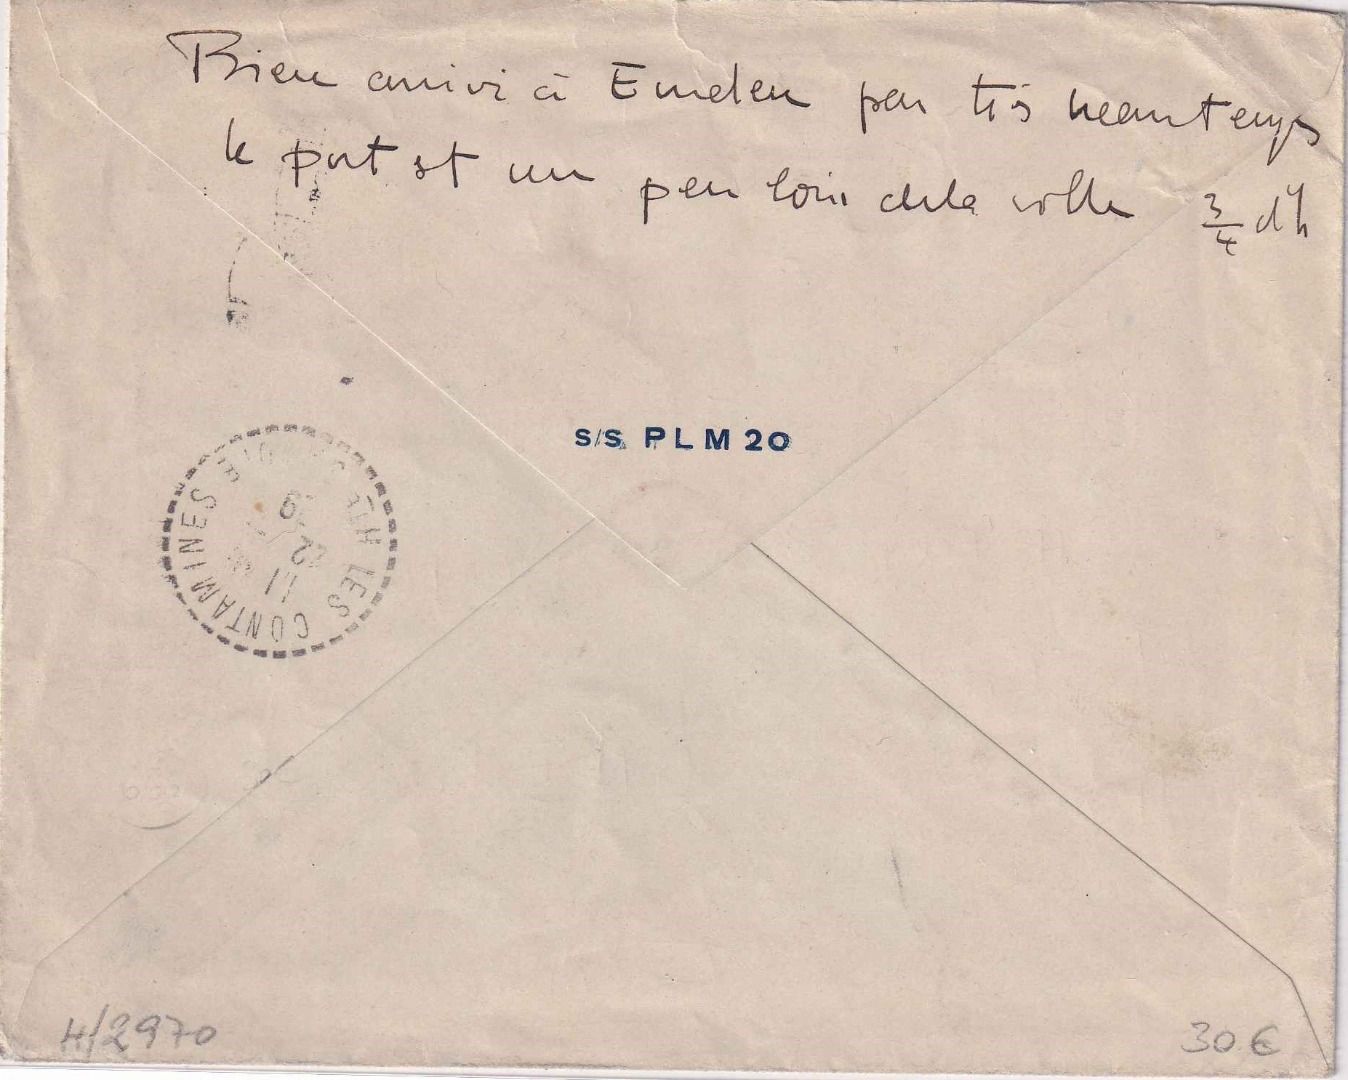 Bien arrivé à Emden par très beau temps
le port est un peu loin de la ville 3/4 d'h
S/S. PLM 20
LES CONTAMINES
HTE
11
22
9
H/2970
30 €